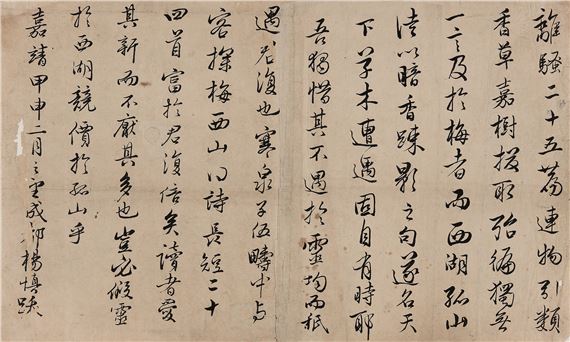 離騷二十五篇連物引類
香草嘉樹掇取殆徧獨無
一言及於梅者而西湖孤山
以暗香疎影之句遂名天
下草木遭遇固自有時耶
吾獨惜其不遇於靈均而秖
遇君復也寒泉子伍疇中與
客探梅西山得詩長短二十
四首富於君復倍矣讀者愛
其新而不厭其多也豈必假靈
於西湖競價於孤山乎
嘉靖甲申二月之望成都楊慎跋